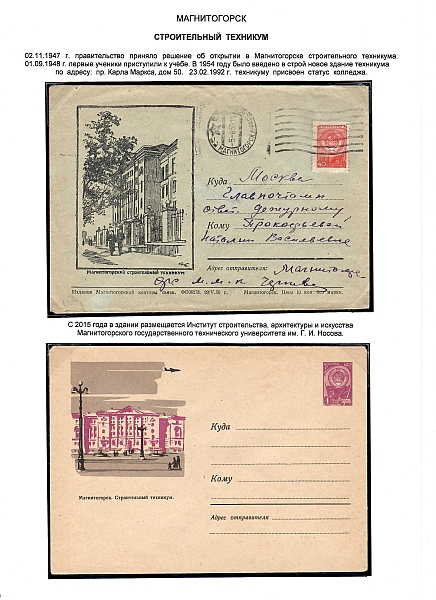 МАГНИТОГОРСК
СТРОИТЕЛЬНЫЙ ТЕХНИКУМ
02.11.1947 г. правительство приняло решение об открытии в Магнитогорске строительного техникума.
01.09.1948 г. первые ученики приступили к учёбе. В 1954 году было введено в строй новое здание техникума
по адресу: пр. Карла Маркса, дом 50. 23.02.1992 г. техникуму присвоен статус колледжа.
МАГНИТОГОРСК
40
Куда Москва
Главпочтамт
ответ дежурному
Кому Прокофьевой
Наталии Васильевне
Адрес отправителя: Магнитогорск
Магнитогорский строительный техникум
Издание Магнитогорской конторы связи.
Магнитогорск. Цена 10 коп. без марки.
С 2015 года в здании размещается Институт строительства, архитектуры и искусства
Магнитогорского государственного технического университета им. Г. И. Носова.
Куда
Кому
Магнитогорск. Строительный техникум.
Адрес отправителя